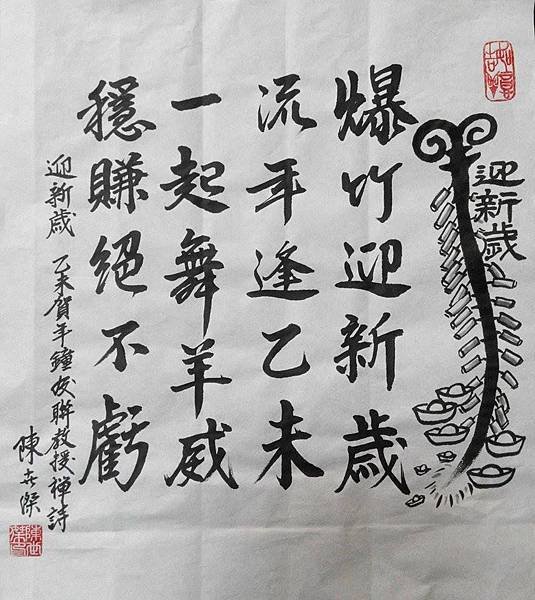 迎新歲
爆竹迎新歲
流年逢乙未
一起舞羊威
穩賺絕不虧
迎新歲 乙未賀年鐘友聯教授禪詩